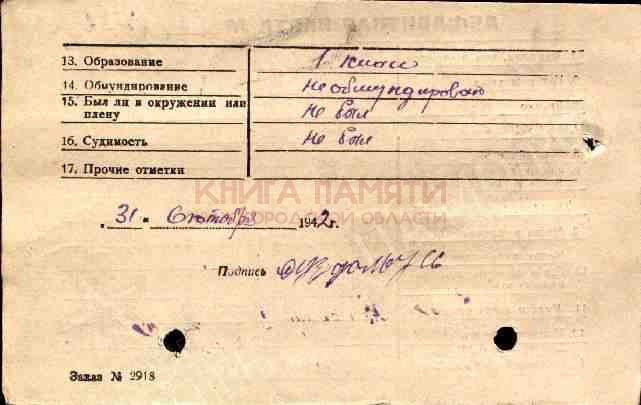 13. Образование 1 класс
14. Обмундирование не обмундирован
15. Был ли в окружении или
плену не был
16. Судимость не был
17. Прочие отметки
КНИГА ПАМЯТИ
НОВГОРОДСКОЙ ОБЛАСТИ
"31" октября 1942 г.
Подпись
Заказ № 2918